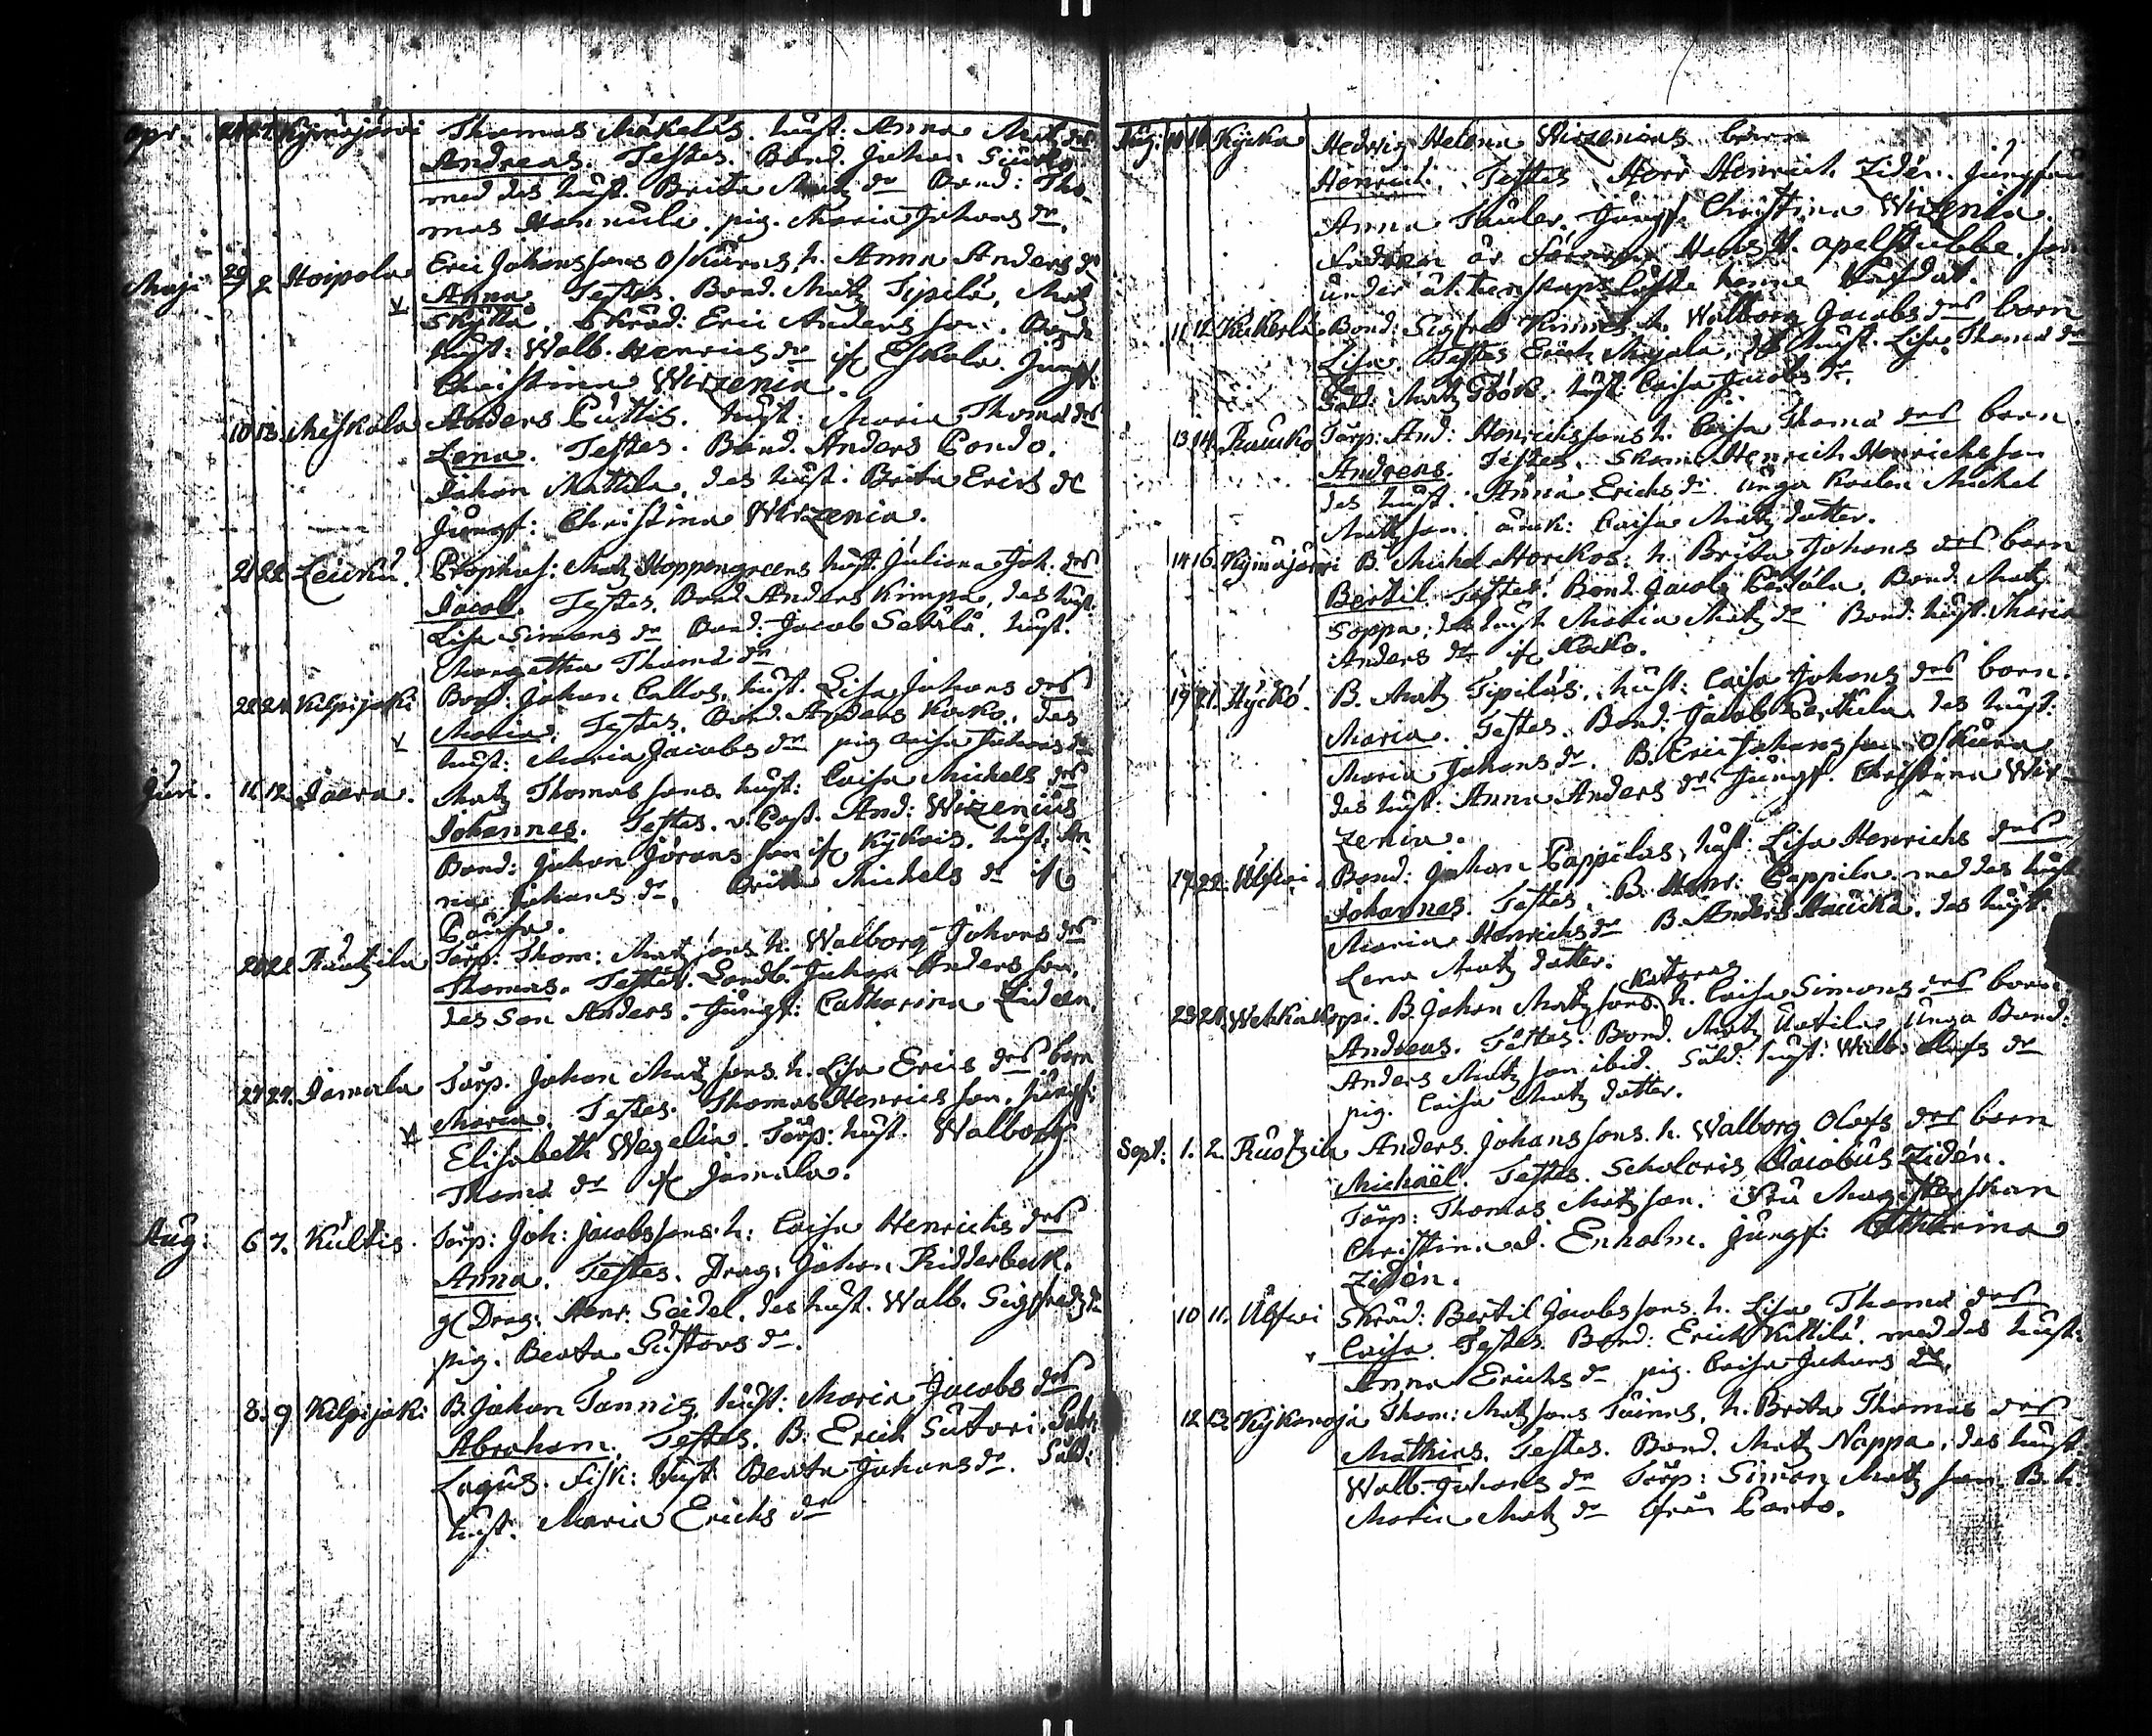 Apr. Kymäjärvi Thomas Mäkeläs hust: Anna Matz drs
Andreas. Testes. Bond. Johan
med des hust. Brita Matz dr Bond: Tho-
mas Hannula. pig. Maria Johans dr.
Maji 29 2 Hoipola Eric Johanssons Oskuras h. Anna Anders dr
Anna. Testes. Bond. Matz Sipilä, Matz
Skyttä. Skräd: Eric Anders son. Bonde
hust: Walb. Henrics dr Eskola. Jungf.
Christina Wirzenia.
10 13 Meskala Anders Cuttis. hust: Maria Thomæ drs
Lena. Testes. Bond. Anders Pondo.
Johan Mattila, des hust. Brita Erics dr
Jungf: Christina Wirzenia.
21 22 Leicku. Prophos: Matz Hoppengreens hust. Juliana Joh. drs
Jacob. Testes. Bond. Anders Kimpa, des hust:
Lisa Simons dr Bond: Jacob Setälä. hust.
Margetha Thomæ dr
Kilpijoki Bond: Johan Callos. hust. Lisa Johans drs
Maria. Testes. Bond. Anders Kocko, des
hust: Maria Jacobs dr pig Caisa Johans dr
Jun. 11 12 Jaara. Matz Thomas sons hust: Caisa Michels drs
Johannes. Testes. v. Past. And: Wirzenius
Bond: Johan Jörans son Kykois. hust: An-
na Johans dr. Brita Michels dr
Pausa.
20 21 Rautzila Torp: Thom: Matz sons h. Walborg Johans drs
Thomas. Testes. Landb. Johan Anders son,
des son Anders. Jungf: Catharina Zideen.
27 29. Jamala Torp. Johan Matz sons. h. Lisa Erics drs. barn
Maria. Testes. Thomas Henrics son. Jungf:
Elisabeth Wegelia. Torp: hust. Walborg
Thomæ dr Jamala.
Aug: 6 7. Kultis. Torp: Joh: Jacobssons. h: Caisa Henrichs drs
Anna. Testes. Drag: Johan Ridderbeck.
Drag: Henr. Seidel. des hust. Walb. Sigfreds dr
pig. Beata Gustavs dr.
8. 9 Kilpijoki B. Johan Tannis. hust: Maria Jacobs drs
Abraham. Testes. B. Erich Sutori.
Lagus. Fisk: hust. Beata Johans dr. Sold:
hust. Maria Erichs dr
Aug: 10 10 Kycka Hedvig Helena Wirzenias barn
Henrich. Testes Herr Henrich Zidén. Jungfru
Anna Thuler. Jungf. Christina Wirzenia.
Fadren är H. Apelstubbe. som
under äktenskaps löfte henne
11 12. Kukerla Bond: Sigfred Kinnos h. Walborg Jacobs drs barn
Lisa. Testes Erich Majala, des hust. Lisa Thomæ dr
Sold: Matz Töök. hust: Caisa Jacobs dr.
13 14. Raucko Torp: And: Henrichssons h. Caisa Thomæ drs barn
Andreas. Testes. Skom: Henrich Henrichsson
des hust. Anna Erichs dr. unga Karlen Michel
Matzson. änck: Caisa Matz dotter.
14 16. Kymäjärvi B. Michel Horckos: h. Brita Johans drs barn
Bertil. Testes: Bond. Jacob Pertula, Bond. Matz
Soppa; des hust Maria Matz dr Bond: hust: Maria
Anders dr Kocko.
19 21. Hyckö. B. Matz Sipiläs. hust: Caisa Johans drs barn.
Maria. Testes. Bond: Jacob Pertula des hust.
Maria Johans dr. B. Eric Johansson Oskura
des hust: Anna Anders dr Jungf. Christina Wir-
zenia.
19 22. Ulfwi Bond: Johan Pappilas, hust: Lisa Henrichs drs
Johannes. Testes. B. Henr: Pappila med des hust
Maria Henrichs dr B. Anders Haucka. des hust
Lena Matz dotter.
Kataras
23 24. Wehkakoppi. B. Johan Matz sons. h. Caisa Simons drs barn
Andreas. Testes. Bond. Matz Uotila. Unga Bond:
Anders Matz son ibid. Sold: hust: Walb: Olofs dr
pig. Caisa Matz dotter.
Sept: 1. 2. Rustzila Anders. Johanssons. h. Walborg Olofs drs barn
Michaël. Testes. Scholaris Jacobus Zidén.
Torp: Thomas Matz son. Fru Magisterskan
Christina d. Enholm. Jungf: Catharina
Zidén.
10 11. Ulfwi Skräd: Bertil Jacobssons. h. Lisa Thomæ drs
Caisa. Testes. Bond: Erich Kittilä. med des hust:
Anna Erichs dr pig. Caisa Johans dr.
12 13. Kykänoja Thom: Matz sons Toinns. h. Brita Thomæ drs
Mathias. Testes. Bond. Matz Nappa. des hust
Walb. Johans dr Torp: Simon Matz son. B. h.
Maria Matz dr från Parto.